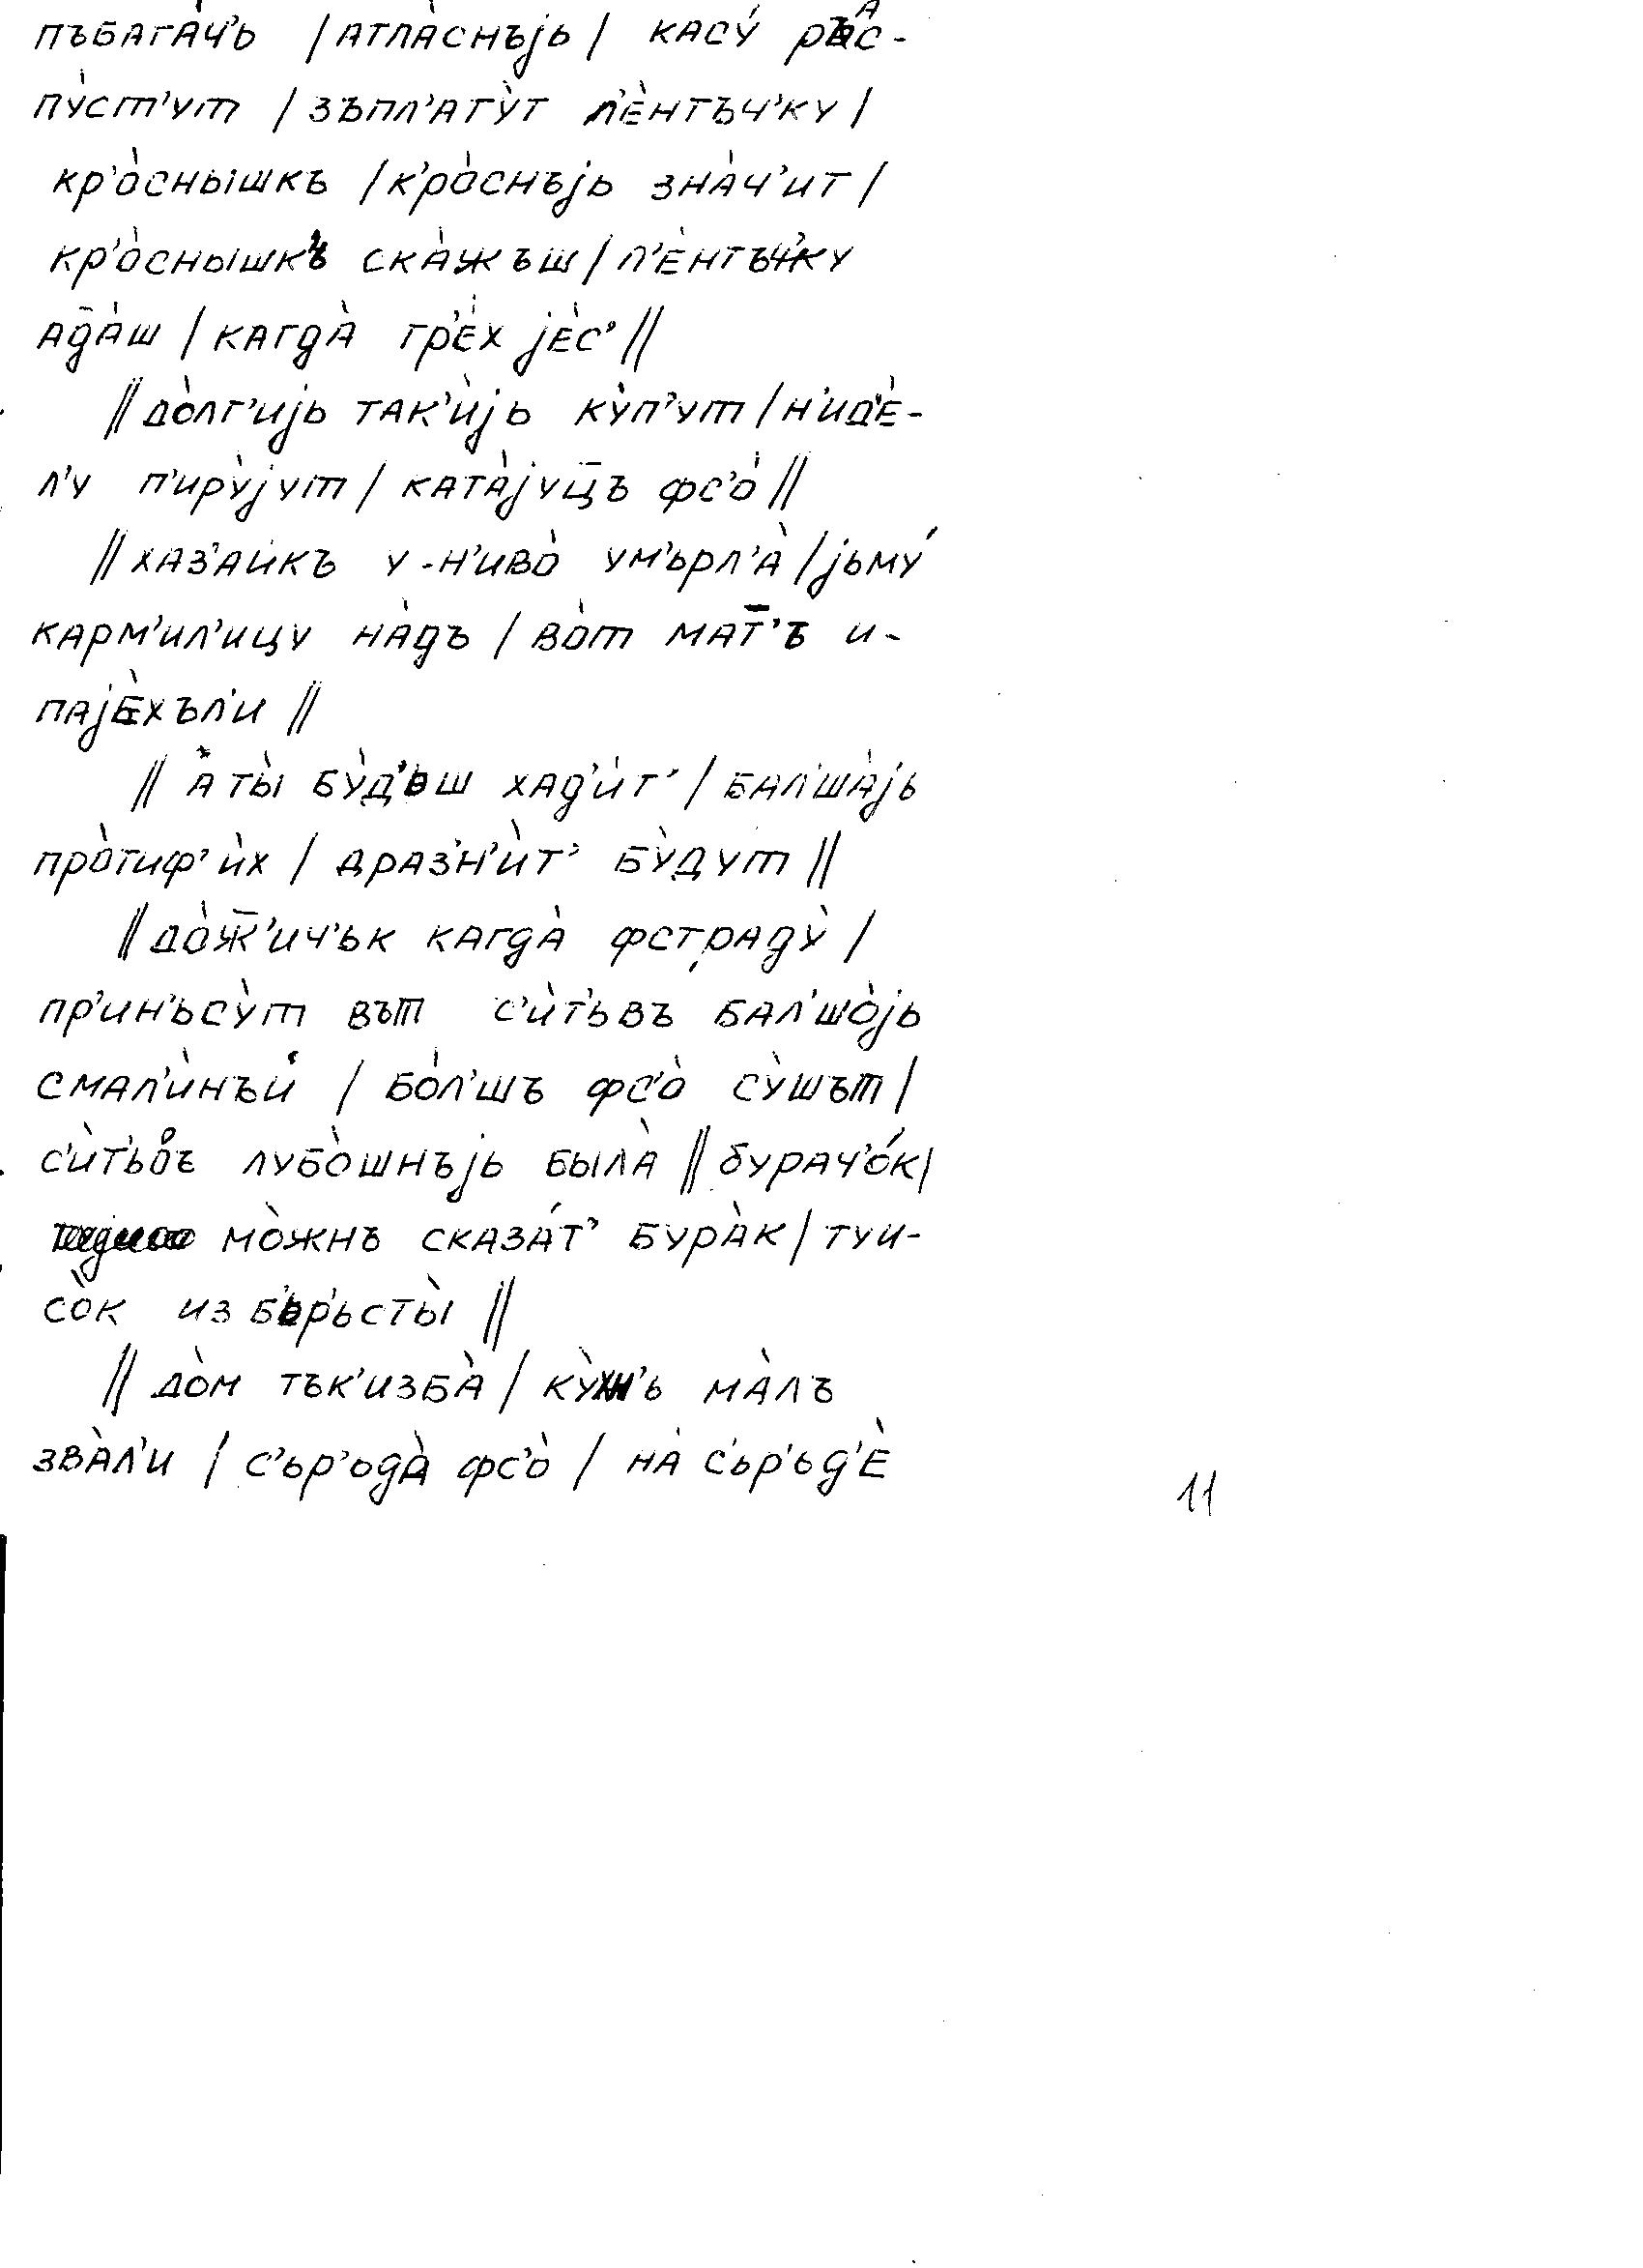 пъбага̀ч'ь / атла̀снъjь / касу́ рас-
пу̀ст'ут / зъпл'ату̀т л'ѐнтъч'ку /
кр'о̀снышкъ / к'ро̀снъjь зна̀ч'ит /
кр'о̀снышкъ ска̀жъш / л'ѐнтъч'ку
ад̄а̀ш / кагда̀ гр'ѐх jѐс' //
// до̀лг'иjь так'ѝjь ку̀п'ут / н'ид'ѐ-
л'у п'иру̀jут / ката̀jуц̄ъ фс'о̀ //
// хаз'а̀йкъ у-н'иво̀ ум'ьрл'а̀ / jьму́
карм'ил'ицу на̀дъ / во̀т мат̄'ъ и-
паjѐхъл'и //
// а ты̀ бу̀д'ьш хад'ѝт' / бал'ша̀jь
про̀тиф' ѝх / дразн'ѝт' бу̀дут //
// до̀ж̄'ич'ьк кагда̀ фстраду̀ /
пр'ин'ьсу̀т вът с'ѝт'ьвъ бал'шо̀jь
смал'ѝнъй / бо̀л'шъ фс'о̀ су̀шът /
с'ѝт'ьвъ лубо̀шнъjь была̀ // бурач'о́к /
мо̀жнъ сказа́т' бура̀к / туи-
со̀к из б'ьр'ьсты̀ //
// до̀м тък'изба̀ / ку̀хн'ь ма̀лъ
зва̀л'и / с'ьр'ода̀ фс'о̀ / на с'ьр'ьд'ѐ
11